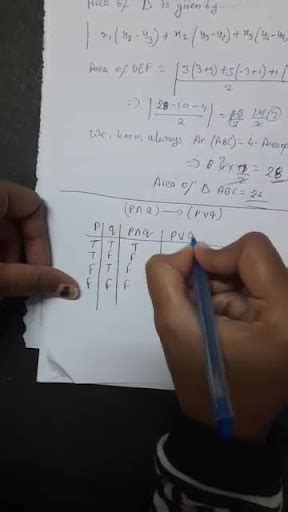 Area of Δ is given by
| x₁(y₂-y₃) + x₂(y₃-y₁) + x₃(y₁-y₂
Area of DEF = | 3(3+5) + 5(-3+1) + 1(
2
=> | 28-10-4 / 2 | =
We know, always Ar(ABC) = 4
=> = 28
Area of Δ ABC =
(P∧q) → (P∨q)
P q P∧q P∨q
T T T
T F F
F T F
F F F